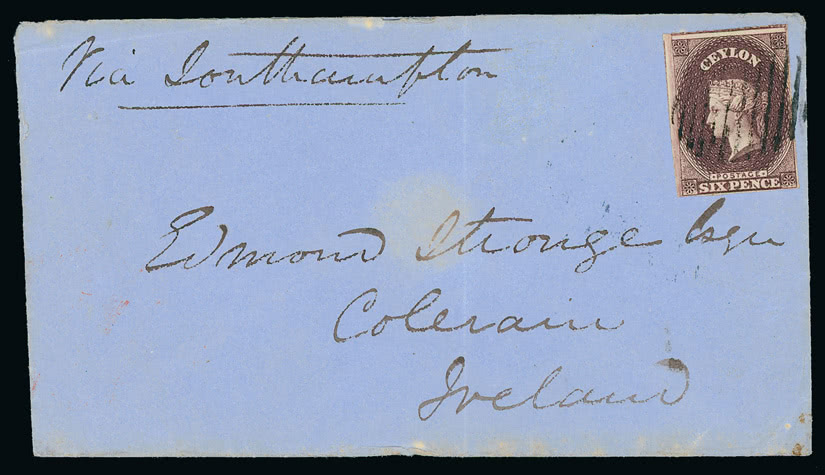 Via Southampton
CEYLON
POSTAGE
SIX PENCE
Edmond Stronge Esqre
Colerain
Ireland